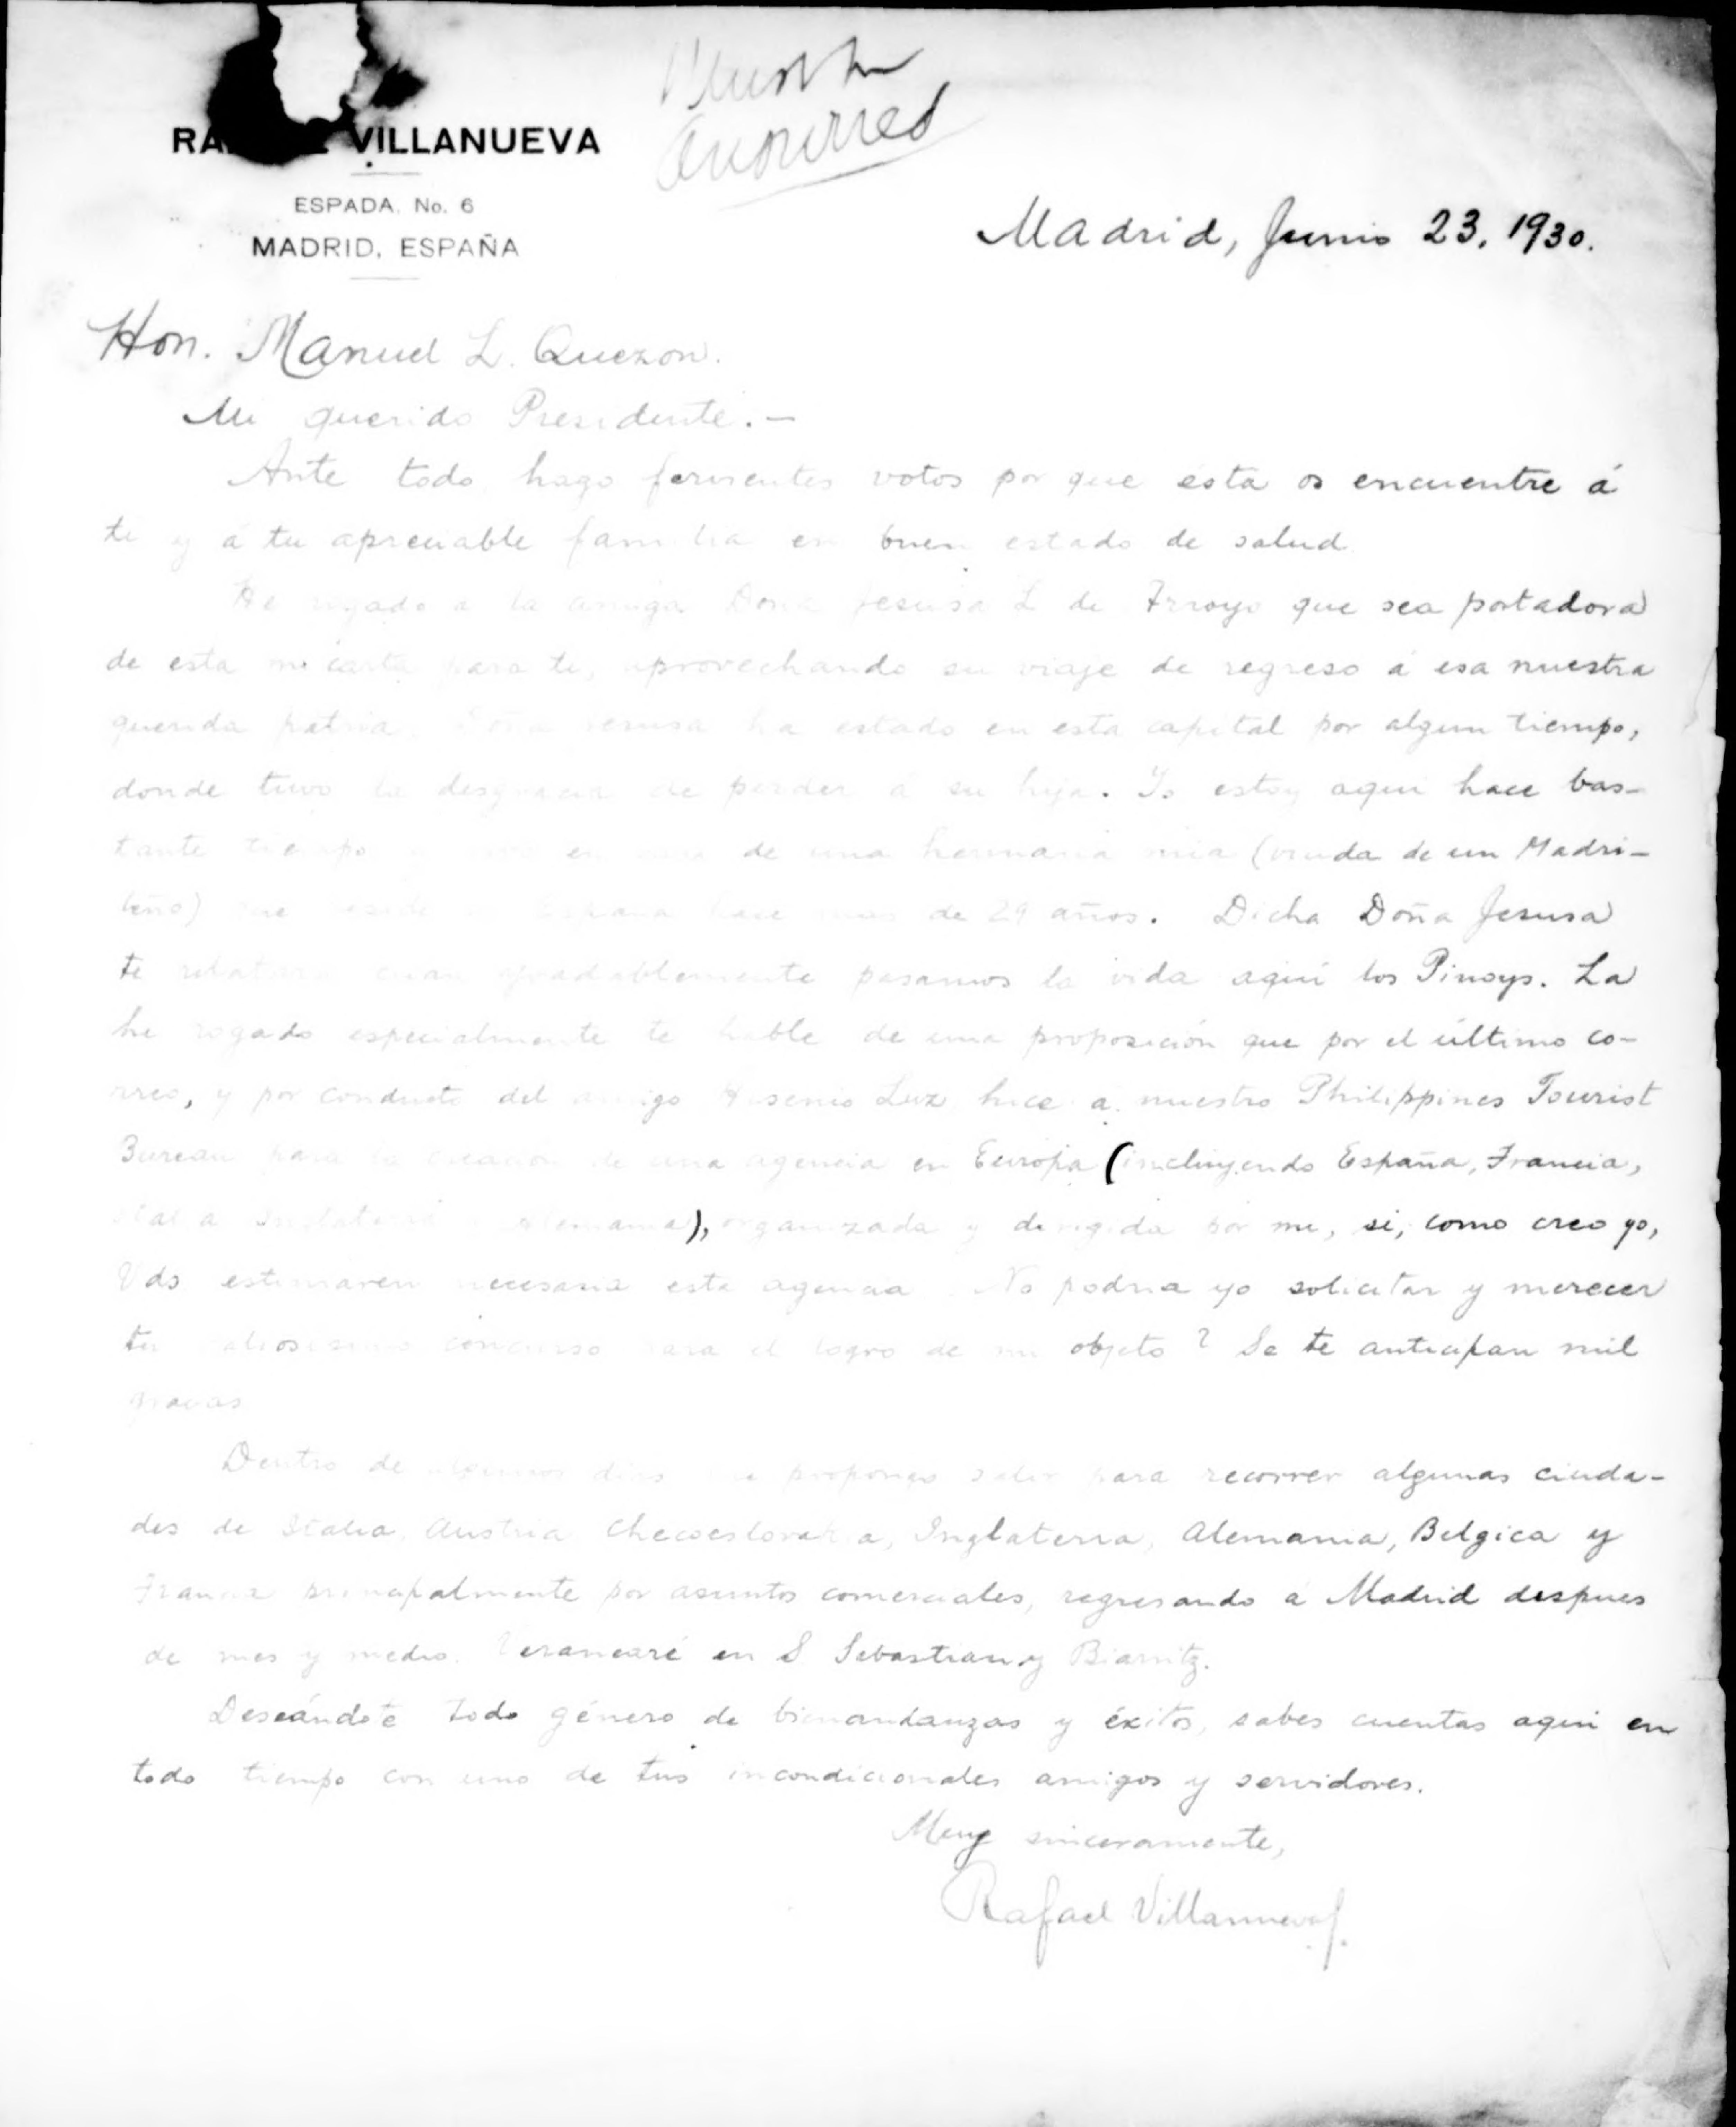 VILLANUEVA
Answered
ESPADA, No. 6
MADRID, ESPAÑA
Madrid, Junio 23, 1930.
Hon. Manuel L. Quezon.
Mi querido Presidente.—
Ante todo, hago fervientes votos por que ésta os encuentre á
ti y á tu apreciable familia en buen estado de salud.
He rogado a la amiga Doña Jesusa L. de Arroyo que sea portadora
de esta mi carta para ti, aprovechando su viaje de regreso á esa nuestra
querida patria. Doña Jesusa ha estado en esta capital por algun tiempo,
donde tuvo la desgracia de perder á su hija. Yo estoy aqui hace bas-
tante tiempo y vivo en casa de una hermana mia (viuda de un Madri-
leño) que reside en España hace mas de 29 años. Dicha Doña Jesusa
te relatará cuan agradablemente pasamos la vida aquí los Pinoys. La
he rogado especialmente te hable de una proposición que por el último co-
rreo, y por conducto del amigo Luz, hice á nuestro Philippines Tourist
Bureau para la creación de una agencia en Europa (incluyendo España, Francia,
Italia Inglaterra y Alemania), organizada y dirigida por mi, si, como creo yo,
Vds estimaren necesaria esta agencia. No podria yo solicitar y merecer
tu valiosisimo concurso para el logro de mi objeto? Se te anticipan mil
gracias.
Dentro de algunos dias me propongo salir para recorrer algunas ciuda-
des de Italia, Austria, Checoeslovakia, Inglaterra, Alemania, Belgica y
Francia principalmente por asuntos comerciales, regresando á Madrid despues
de mes y medio. Veranearé en S. Sebastian y Biarritz.
Deseándote todo género de bienandanzas y éxitos, sabes cuentas aqui en
todo tiempo con uno de tus incondicionales amigos y servidores.
Muy sinceramente,
Rafael Villanueva